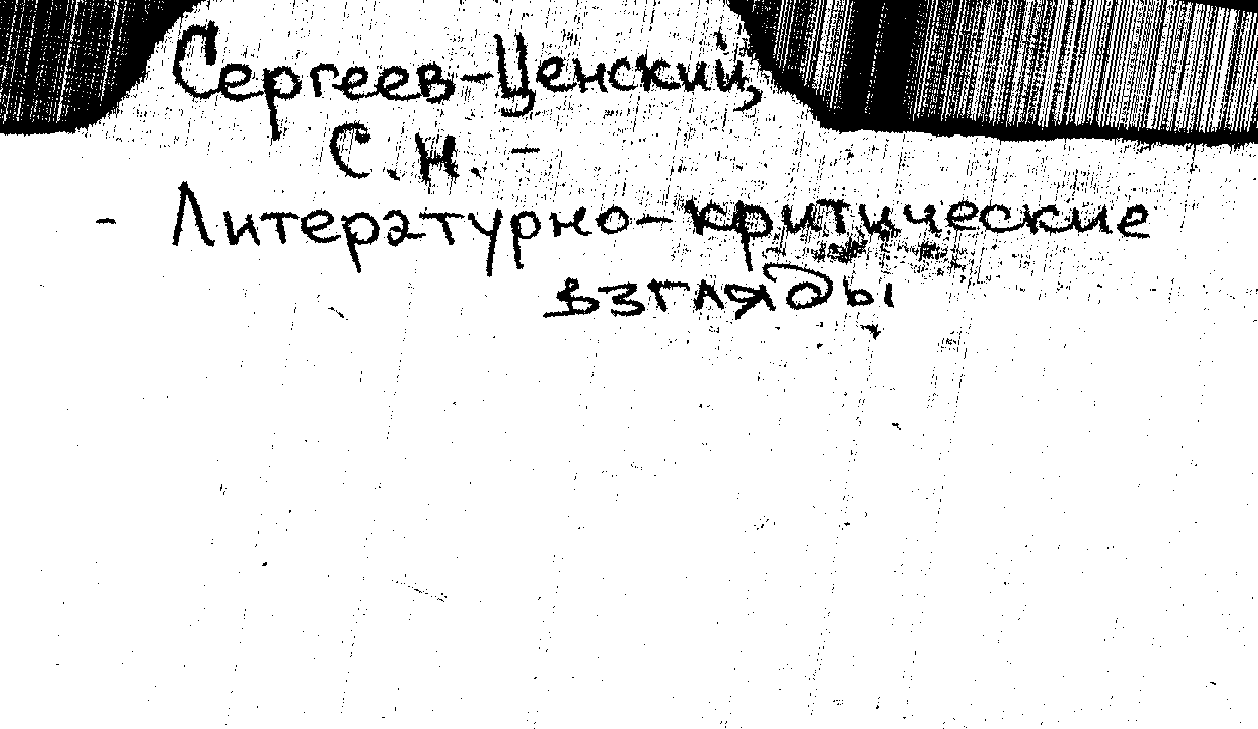 Сергеев-Ценский,
С.Н. -
- Литературно-критические
взгляды